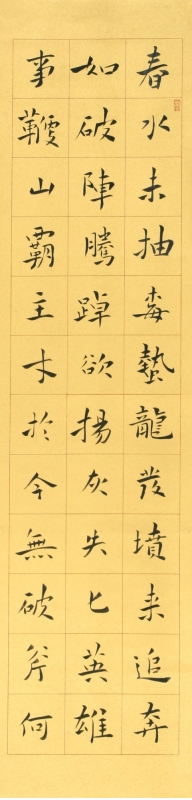 春水未抽毒蟄龍發墳来追奔
如破陣騰踔欲揚灰失匕英雄
事鞾山霸主木於今無破斧何